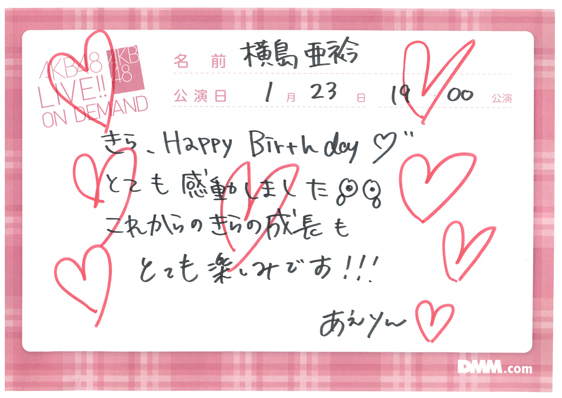 AKB48
LIVE!!
ON DEMAND
AKB
48
名前 横島亜衿
公演日 1月23日 19:00公演
きら、Happy Birthday♡"
とても感動しました
これからのきらの成長も
とても楽しみです!!!
あえりん♡
DMM.com